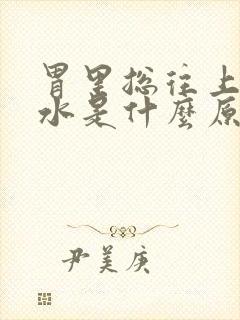 胃里总往上
水是什麼原
尹美庚